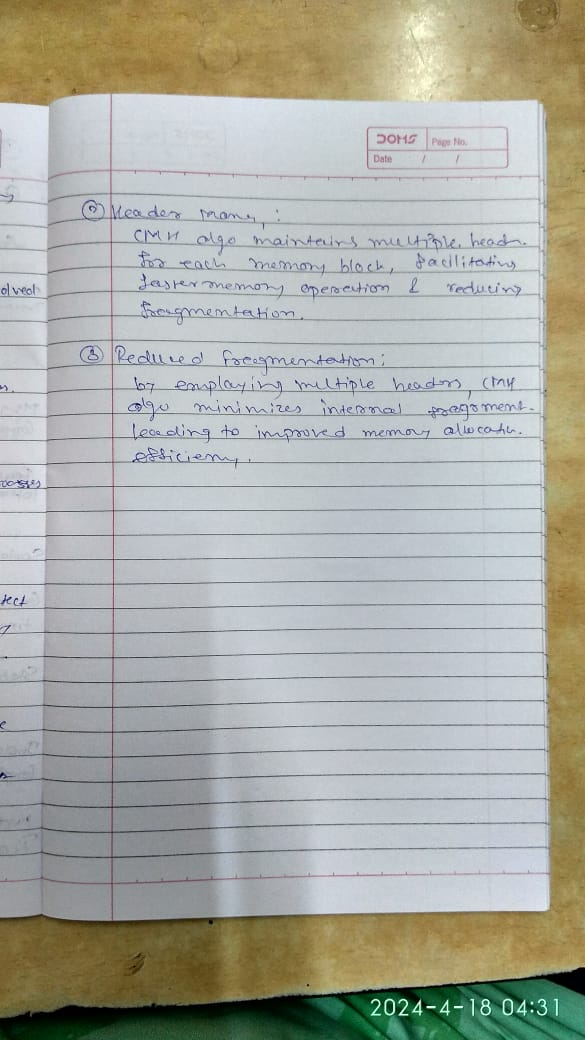 DOMS Page No.
Date / /
② Header many, :
CMH algo maintains multiple head.
for each memory block, facilitating
faster memory operation & reducing
fragmentation.
③ Reduced fragmentation;
by employing multiple headers, CMH
algo minimizes internal fragoment-
leading to improved memory allocatn.
efficieny.
olved
n.
ocesses
tect
e
2024-4-18 04:31